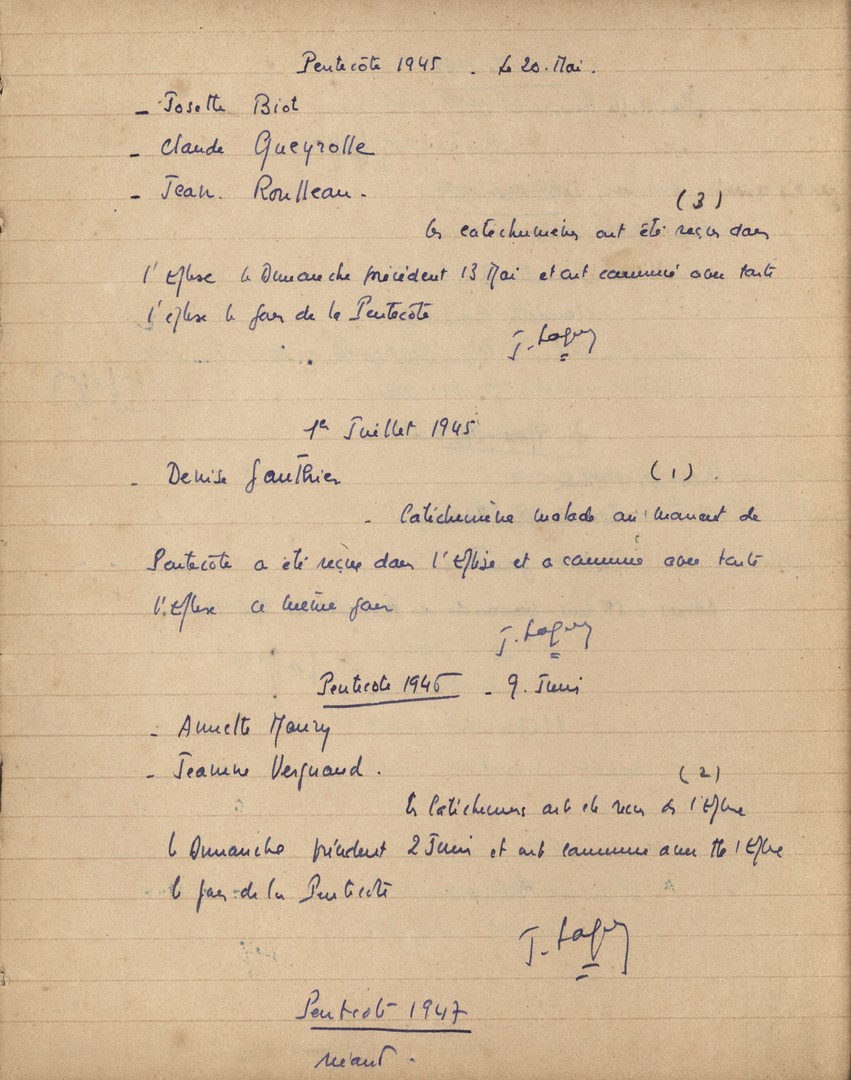 Pentecôte 1945 - Le 20. Mai.
- Josette Biot
- Claude Queyrolle
- Jean. Roulleau.
(3)
les catéchumènes ont été reçus dans
l'Eglise le Dimanche précédent 13 Mai et ont communié avec toute
l'église le jour de la Pentecôte
J.
1er Juillet 1945
- Denise Gauthier (1).
- Catéchumène malade au moment de
Pentecôte a été reçue dans l'Eglise et a communié avec toute
l'Eglise ce même jour
J.
Pentecote 1946 - 9. Juin
- Annette Maury
- Jeannine Vergnaud.
(2)
les Catéchumes ont été reçus ds l'Eglise
le Dimanche précédent 2 Juin et ont communié avec tte l'Eglise
le jour de la Pentecôte
J.
Pentecôte 1947
néant.